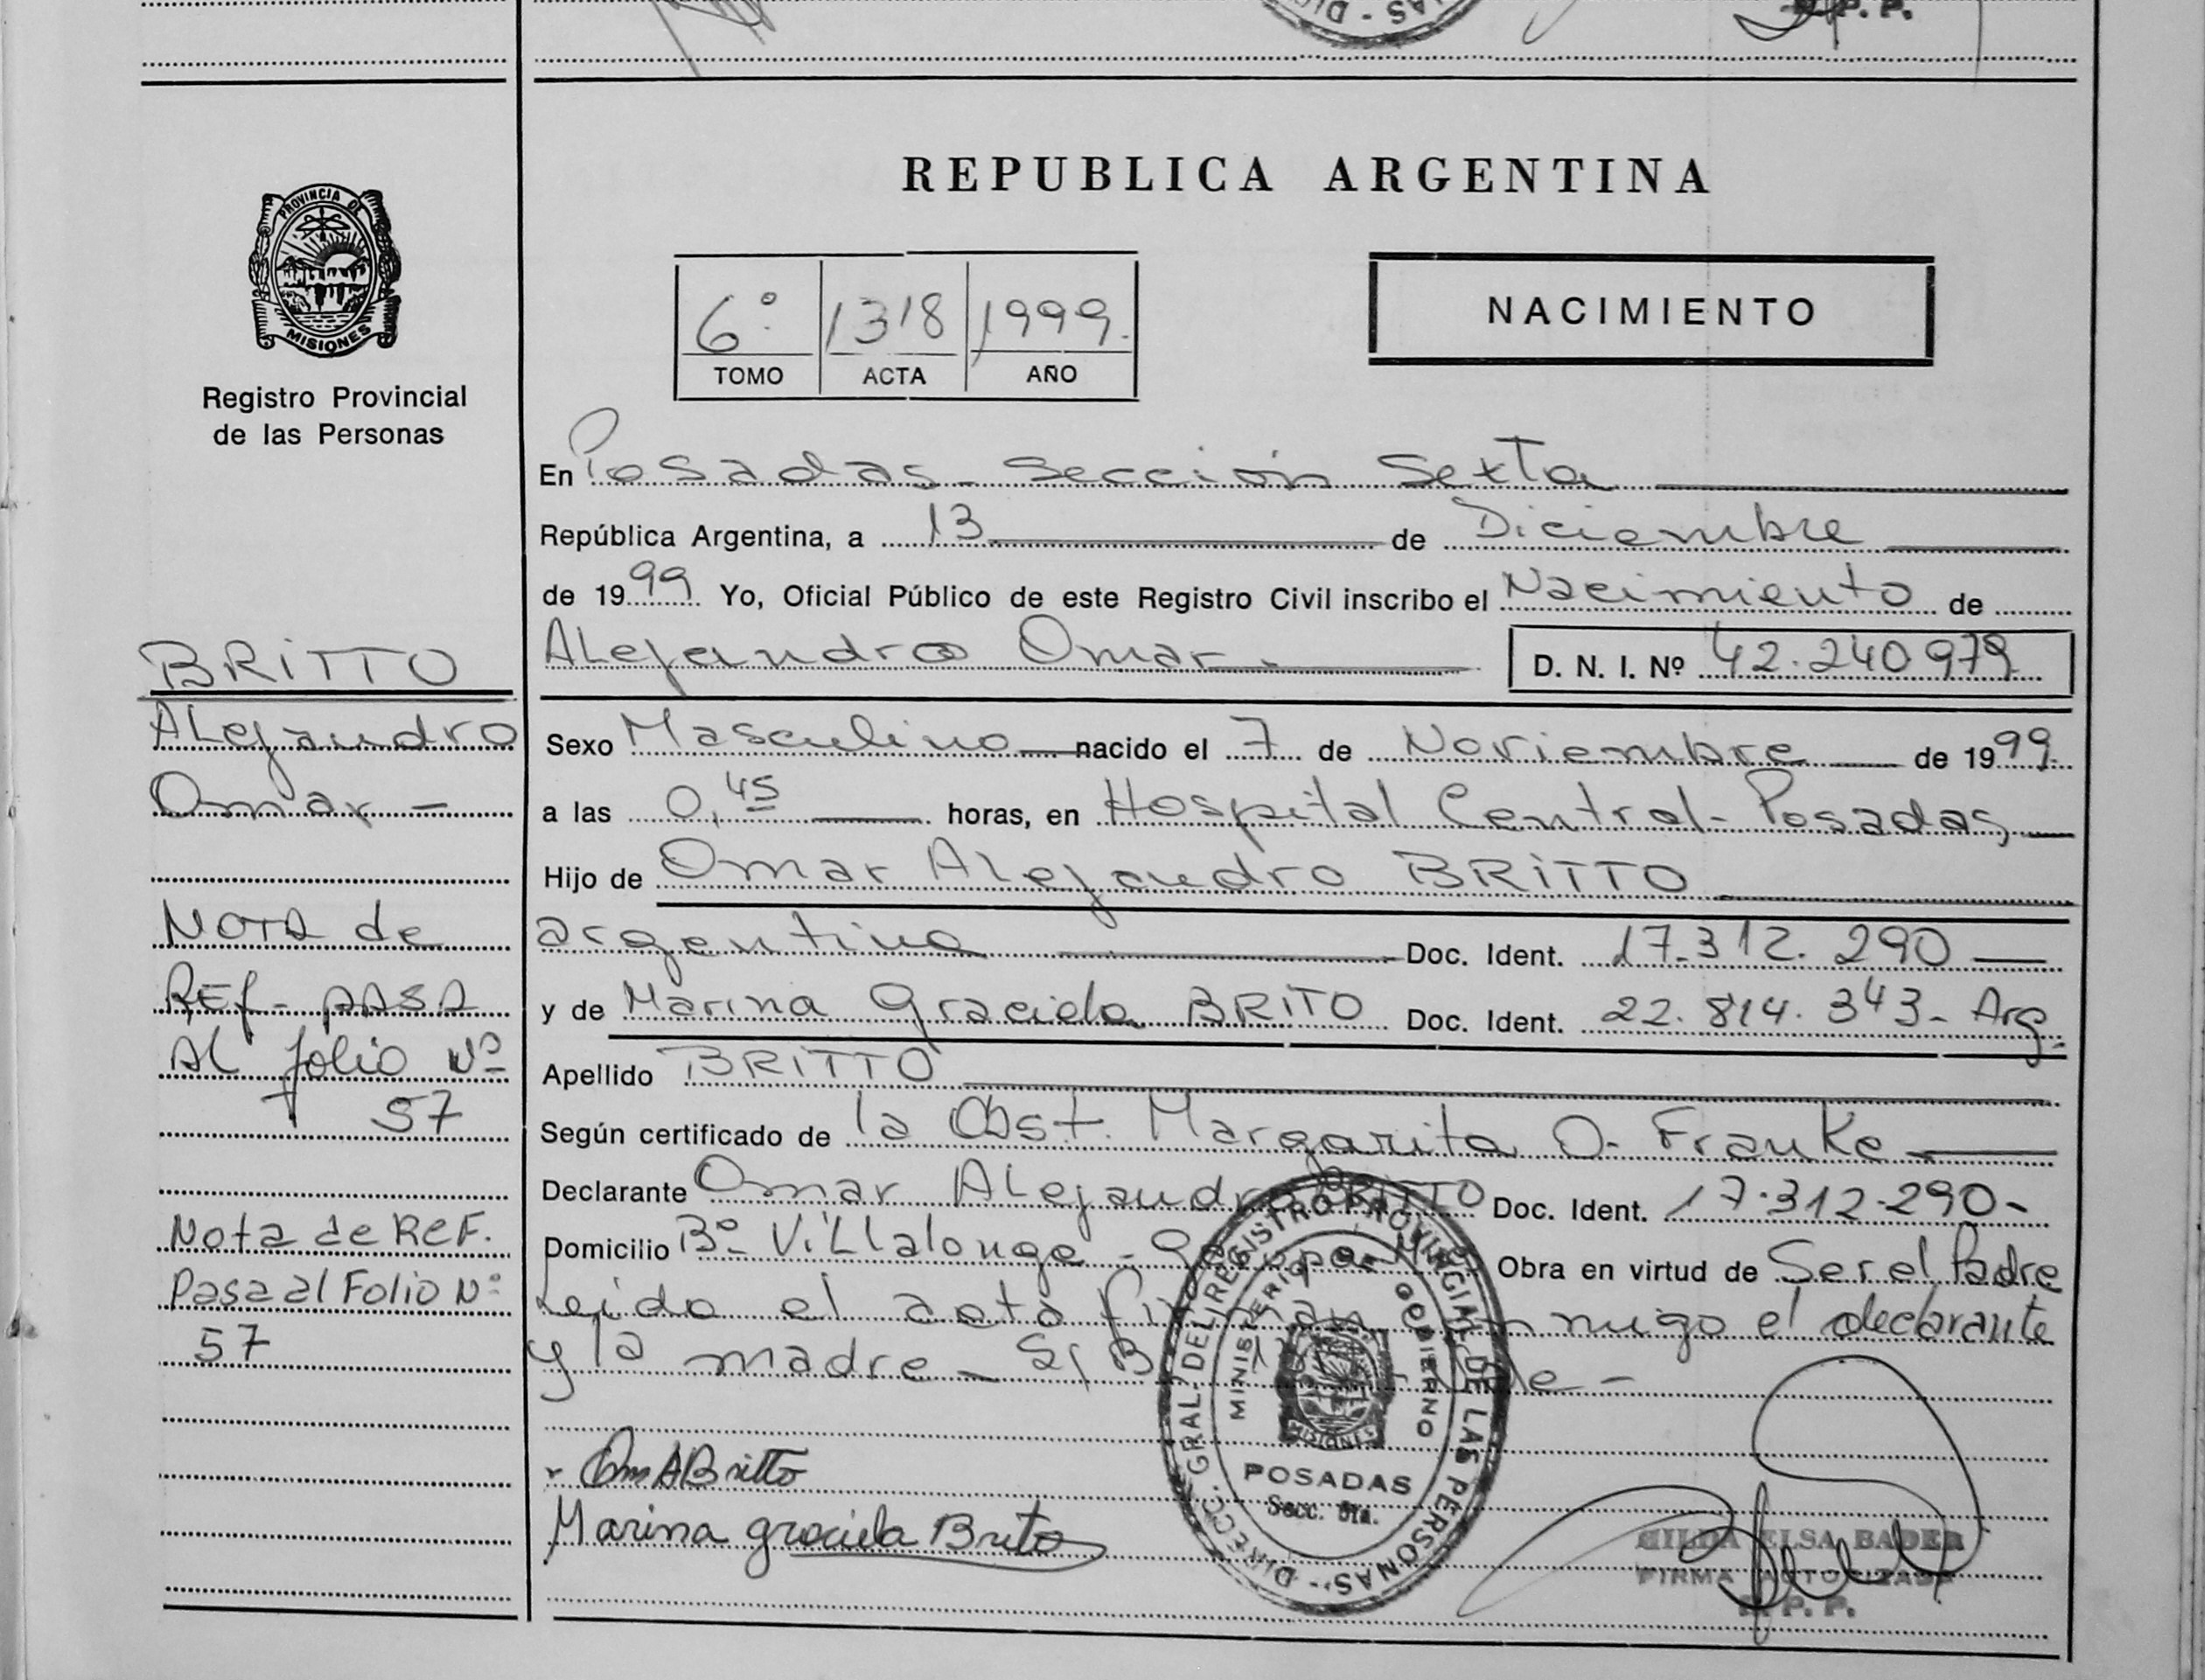 P. P.
PROVINCIA DE
MISIONES
Registro Provincial
de las Personas
REPUBLICA ARGENTINA
6º 1318 1999.
TOMO ACTA AÑO
NACIMIENTO
En Posadas - Sección Sexta
República Argentina, a 13 de Diciembre
de 1999 Yo, Oficial Público de este Registro Civil inscribo el Nacimiento de
Alejandro Omar D. N. I. Nº 42.240.979
Sexo Masculino nacido el 7 de Noviembre de 1999
a las 0,45 horas, en Hospital Central - Posadas,
Hijo de Omar Alejandro BRITTO
argentino Doc. Ident. 17.312.290
y de Marina Graciela BRITO Doc. Ident. 22.814.343- Arg.
Apellido BRITTO
Según certificado de la Obst. Margarita O. Franke
Declarante Omar Alejandro BRITTO Doc. Ident. 17.312.290-
Domicilio Bº Villalonga - Obra en virtud de Ser el Padre
Leido el acta firman conmigo el declarante
y la madre -
BRITTO
Alejandro
Omar -
Nota de
REf - PASA
Al folio Nº
57
Nota de REF.
Pasa al Folio Nº
57
Om A Britto
Marina graciela Brito
DIRECC. GRAL. DEL REGISTRO PROVINCIAL DE LAS PERSONAS
MINISTERIO DE GOBIERNO
MISIONES
POSADAS
Secc. 6ta.
GILDA ELSA BADER
FIRMA AUTORIZADA
R. P. P.